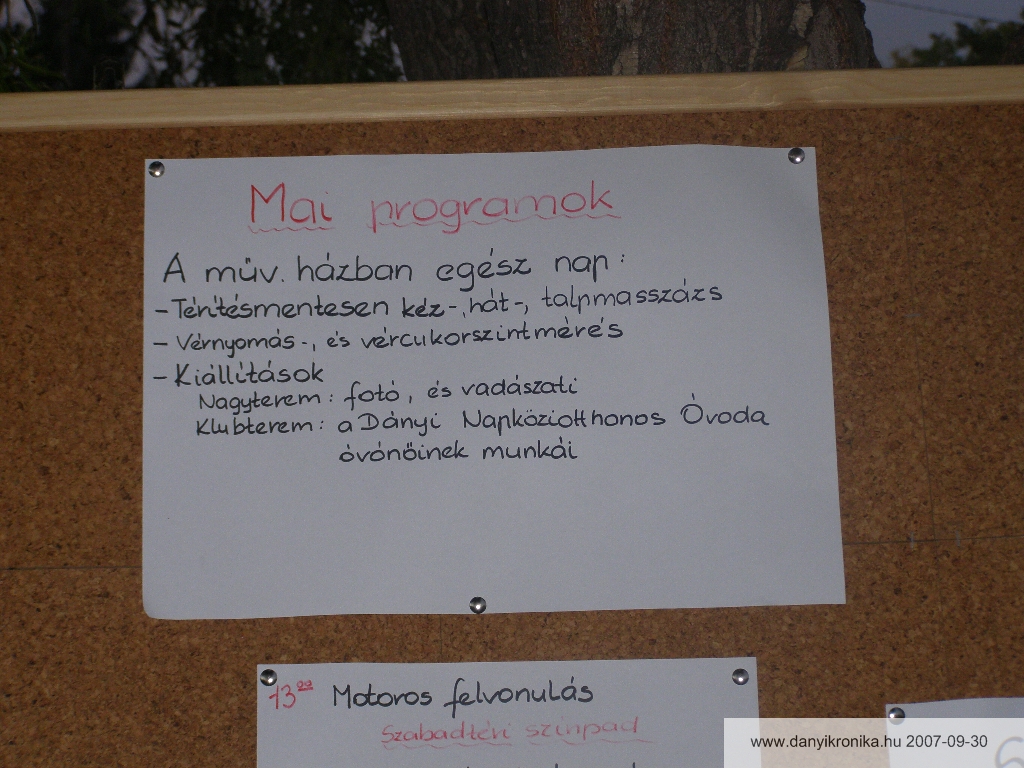 Mai programok
A műv. házban egész nap:
- Térítésmentesen kéz-, hát-, talpmasszázs
- Vérnyomás-, és vércukorszintmérés
- Kiállítások
Nagyterem: fotó, és vadászati
Klubterem: a Dányi Napköziotthonos Óvoda
óvónőinek munkái
13⁰⁰ Motoros felvonulás
Szabadtéri színpad
www.danyikronika.hu 2007-09-30